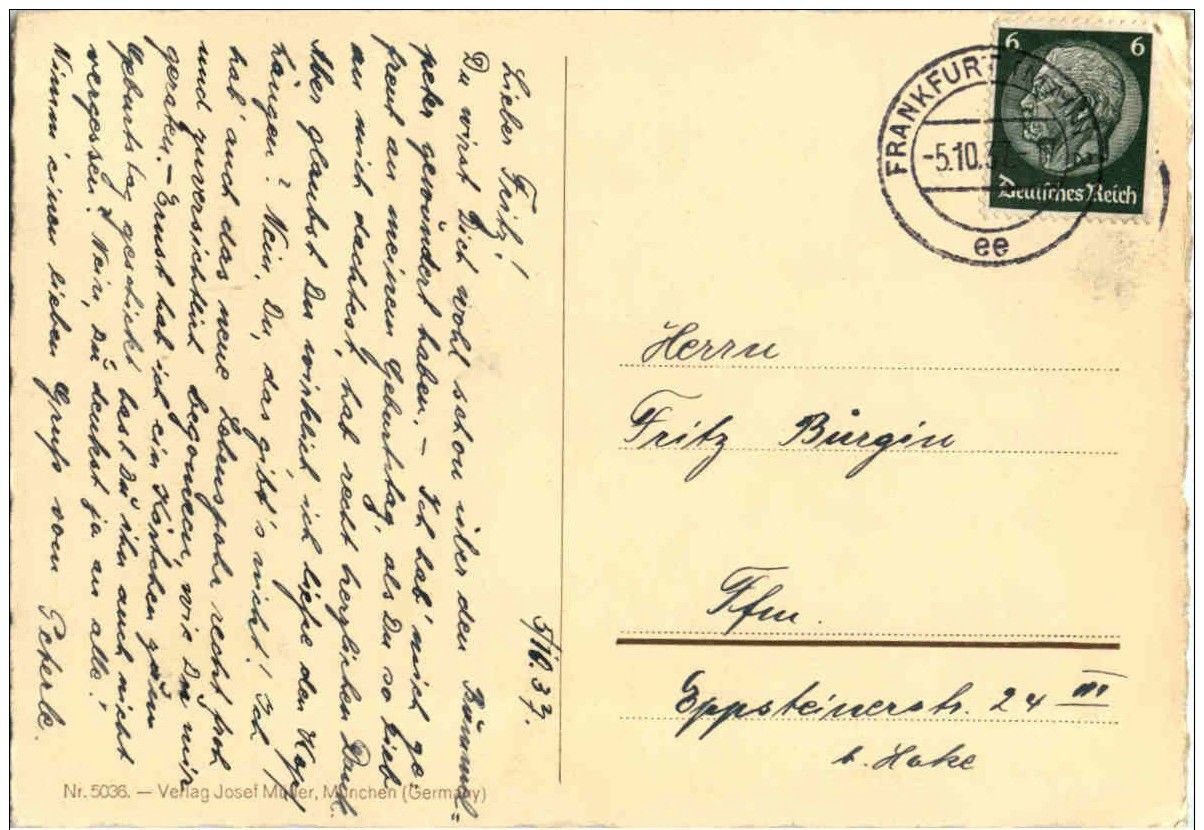 5/10.37.
Lieber Fritz!
Du wirst Dich wohl schon über den Bummel=
peter gewundert haben. – Ich hab' mich ge-
freut an meinem Geburtstag, als Du so lieb
an mich dachtest, hab recht herzlichen Dank.
Aber glaubst Du wirklich ich ließe den Kopf
hängen? Nein, Du, das gibt's nicht! Ich
hab' auch das neue Lebensjahr recht froh
und zuversichtlich begonnen, wie Du mir
geraten. – Ernst hat ich ein Kärtchen zum
Geburtstag geschickt hast Du ihn auch nicht
vergessen? Nein, Du denkst ja an alle!
Nimm einen lieben Gruß vom Peterle.
Nr. 5036. — Verlag Josef Müller, München (Germany)
FRANKFURT (MAIN)
-5.10.37
ee
6 6
Deutsches Reich
Herrn
Fritz Bürgin
Ffm.
Eppsteinerstr. 24 III
b. Hake